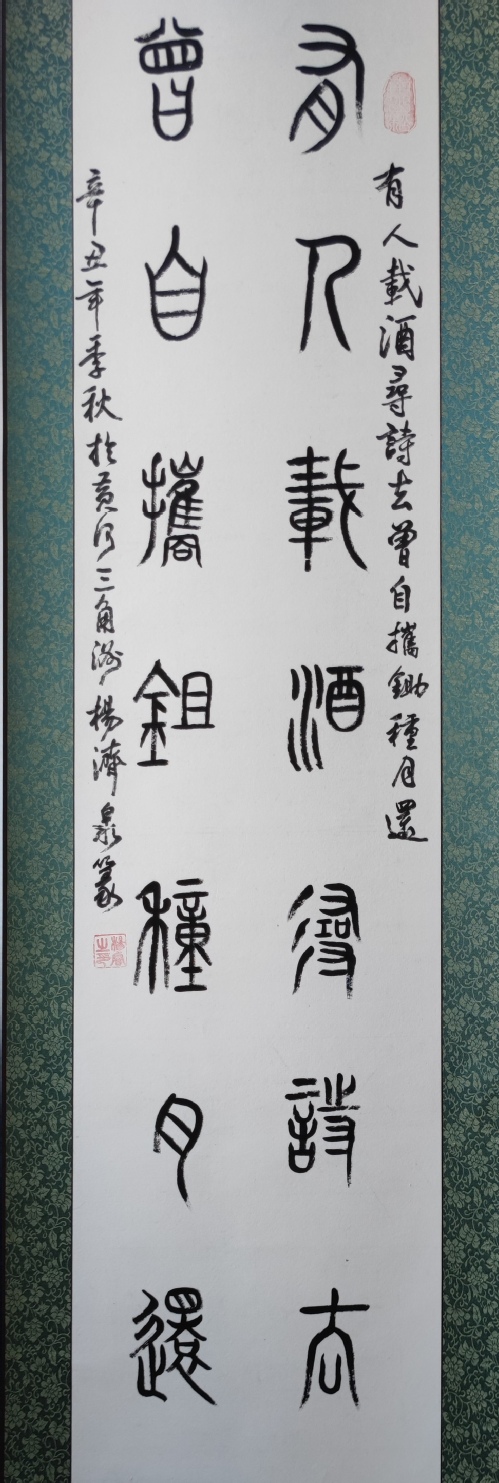 有人載酒尋詩去曾自攜鋤種月還
有人載酒尋詩去
曾自攜鉏種月還
辛丑年季秋於黃河三角洲楊濟泉篆